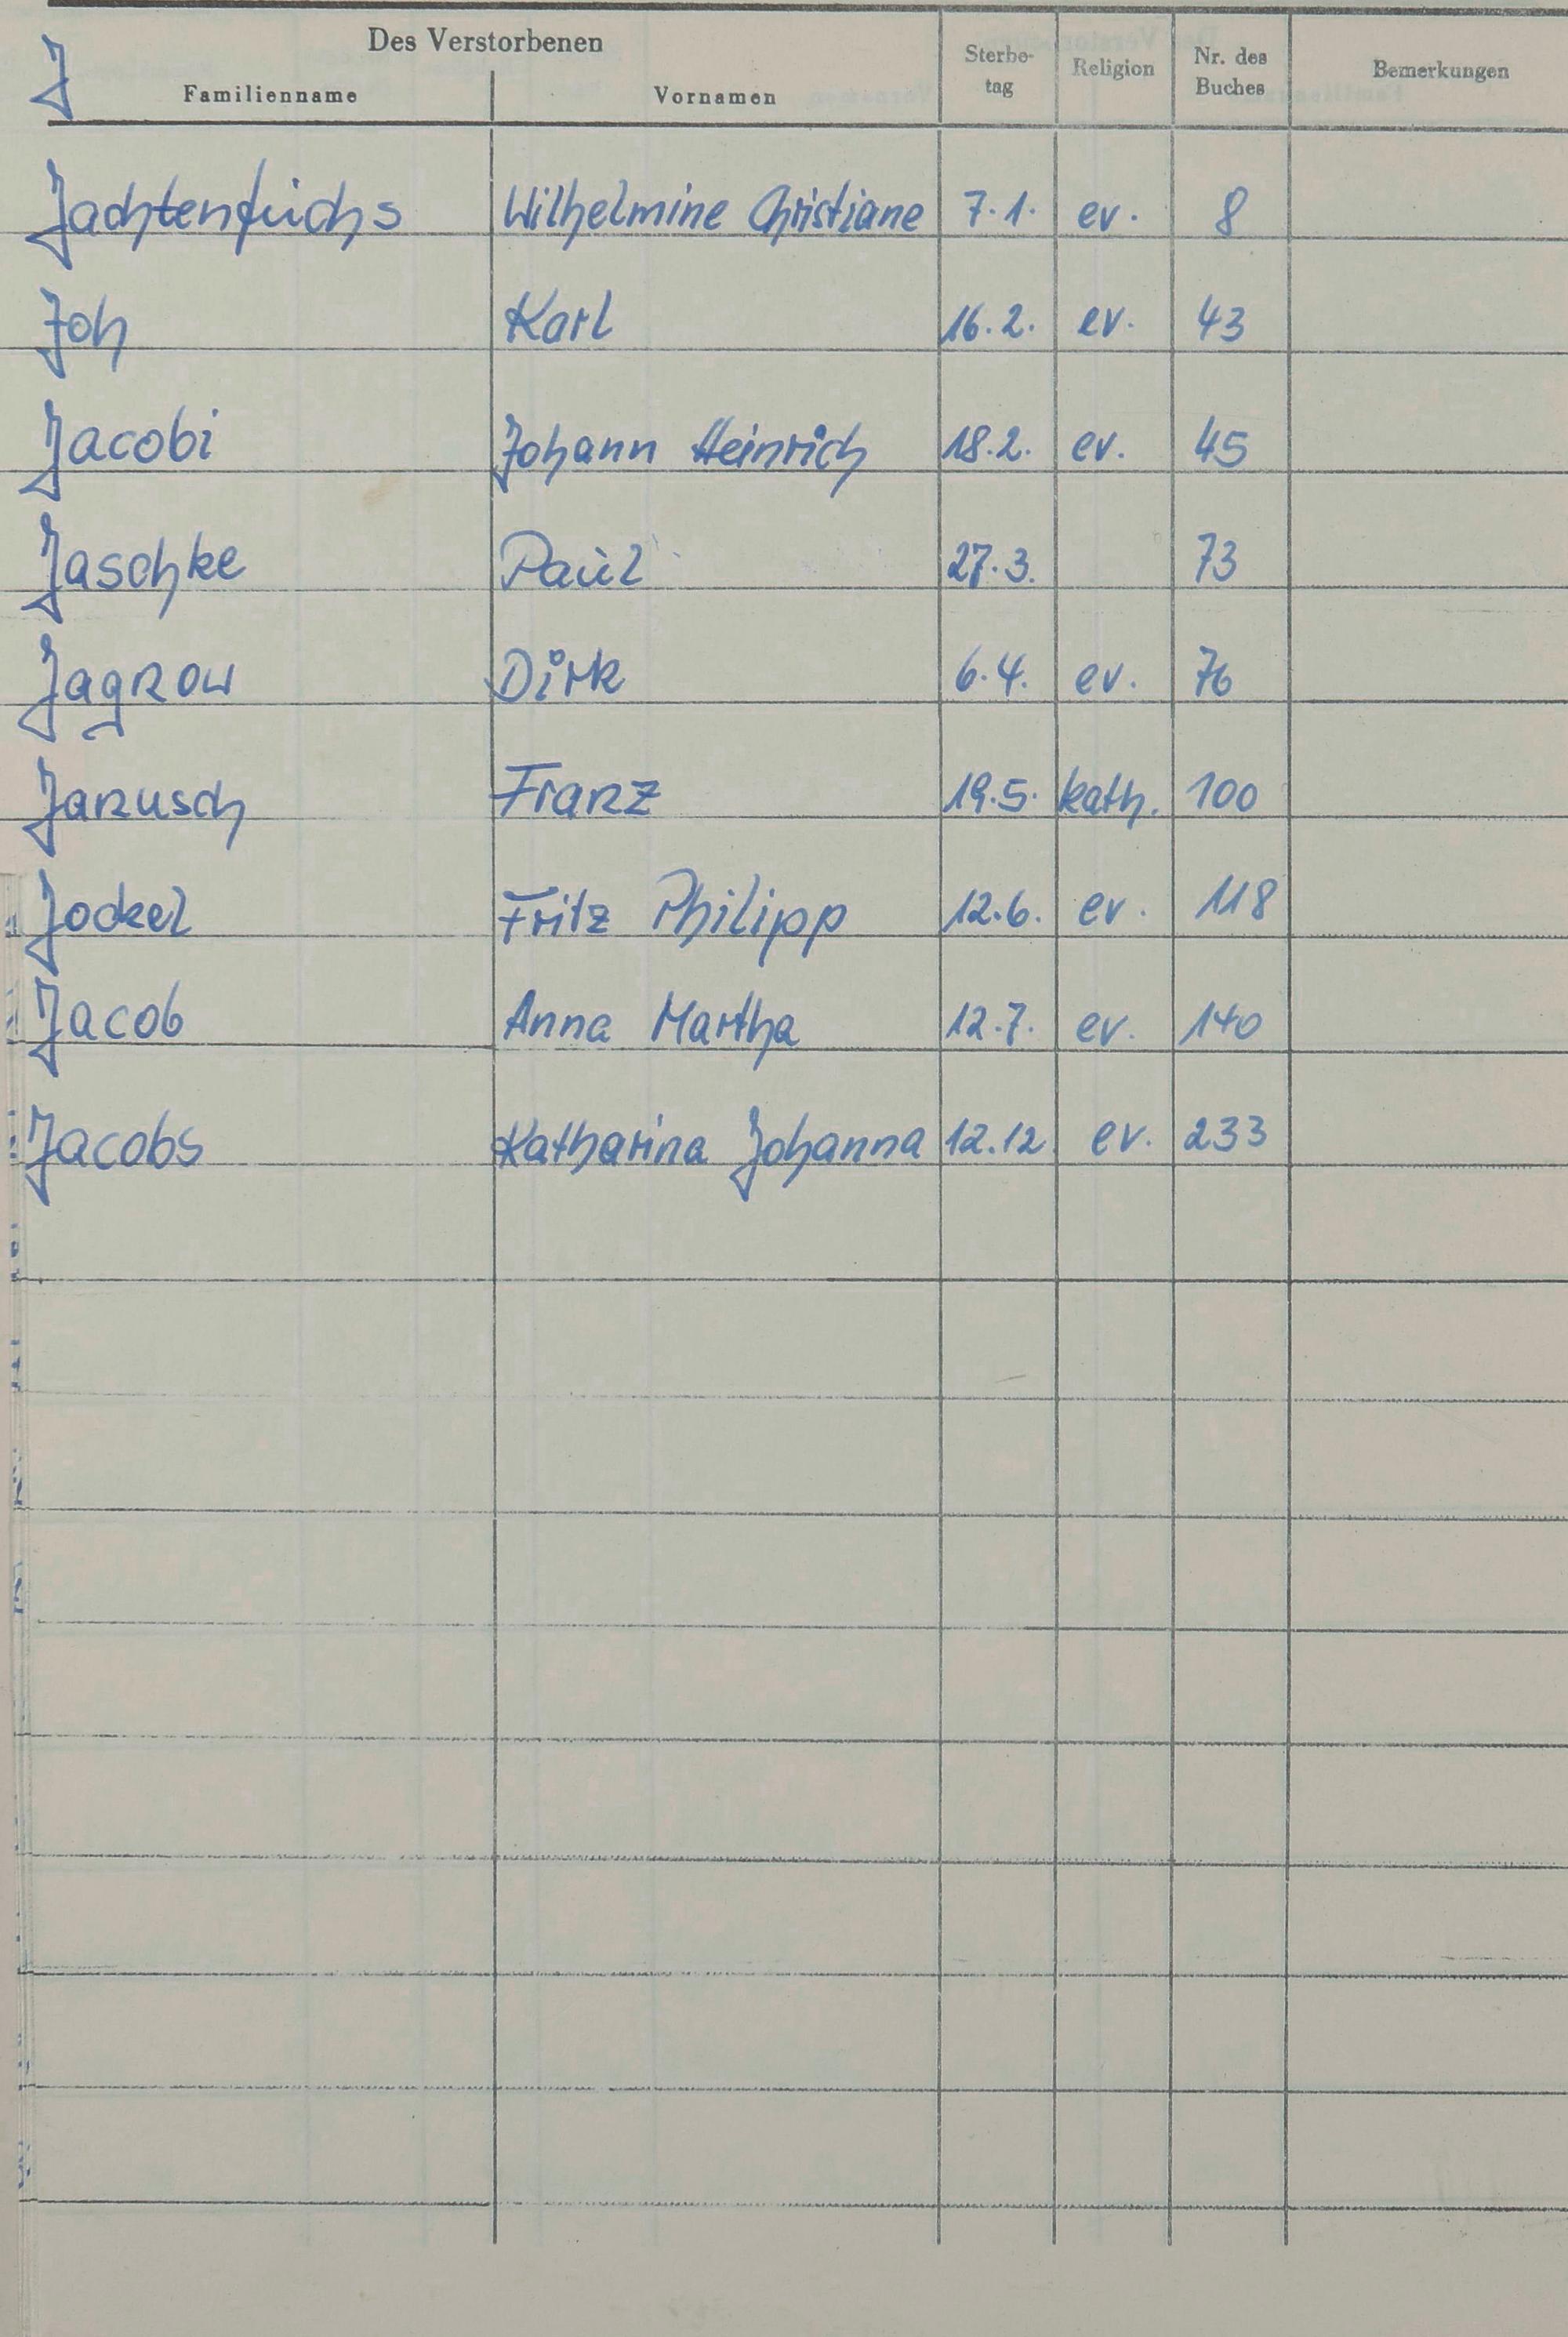 J
Des Verstorbenen
Familienname Vornamen Sterbe-tag Religion Nr. des Buches Bemerkungen
Jachtenfuchs Wilhelmine Christiane 7.1. ev. 8
Joh Karl 16.2. ev. 43
Jacobi Johann Heinrich 18.2. ev. 45
Jaschke Paul 27.3. 73
Jagnow Dirk 6.4. ev. 76
Janusch Franz 19.5. kath. 100
Jockel Fritz Philipp 12.6. ev. 118
Jacob Anna Martha 12.7. ev. 140
Jacobs Katharina Johanna 12.12 ev. 233